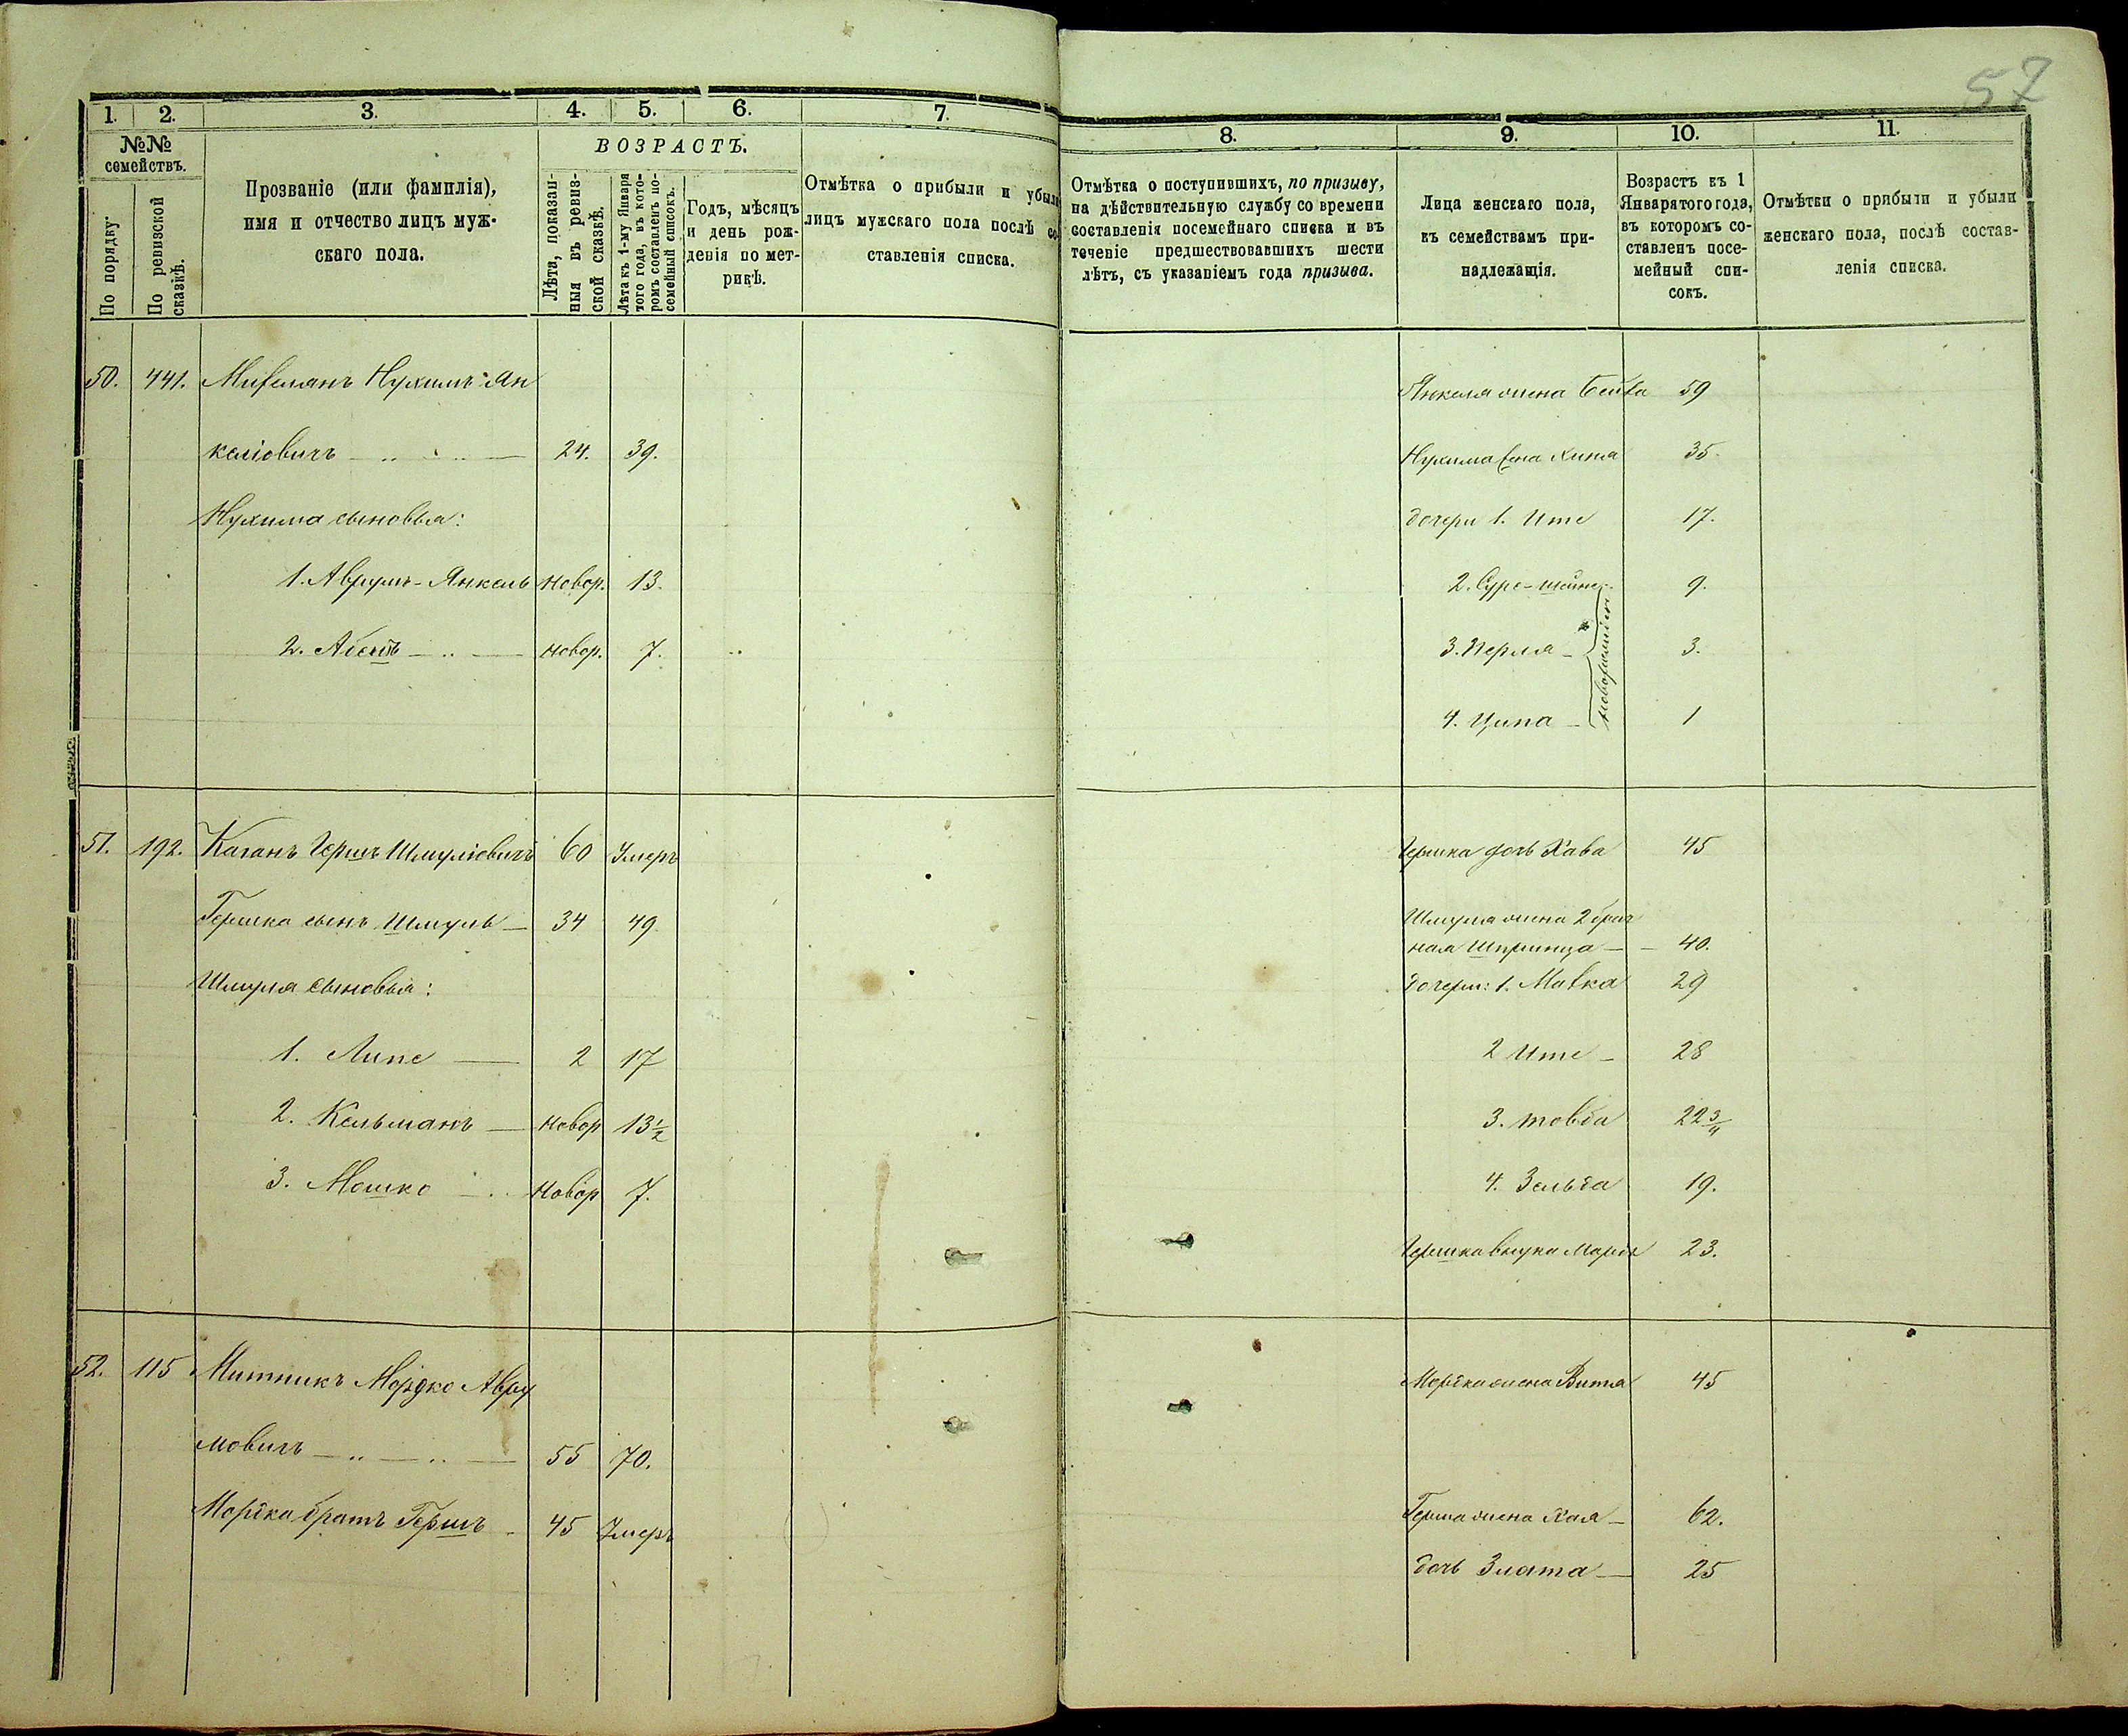 57
1. 2. 3. 4. 5. 6. 7.
№№ семействъ.
По порядку
По ревизской сказкѣ.
Прозваніе (или фамилія),
имя и отчество лицъ муж-
скаго пола.
ВОЗРАСТЪ.
Лѣта, показан-
ныя въ ревиз-
ской сказкѣ.
Лѣта къ 1-му Января
того года, въ кото-
ромъ составленъ по-
семейный списокъ.
Годъ, мѣсяцъ
и день рож-
денія по мет-
рикѣ.
Отмѣтка о прибыли и убыли
лицъ мужскаго пола послѣ со-
ставленія списка.
50. 441. Нухимъ Ян
келіовичъ 24. 39.
Нухима сыновья:
1. Аврумъ-Янкель новор. 13.
2. новор. 7.
51. 192. Каганъ Гершъ Шмуліовичъ 60 Умеръ
Гершка сынъ Шмуль 34 49
Шмуля сыновья:
1. Липе 2 17
2. Кельманъ новор 13½
3. Мошко новор 7.
52. 115 Митникъ Мордко Авру
мовичъ 55 70.
Мордка братъ Гершъ 45 Умеръ
8. 9. 10. 11.
Отмѣтка о поступившихъ, по призыву,
на дѣйствительную службу со времени
составленія посемейнаго списка и въ
теченіе предшествовавшихъ шести
лѣтъ, съ указаніемъ года призыва.
Лица женскаго пола,
къ семействамъ при-
надлежащія.
Возрастъ къ 1
Января того года,
въ которомъ со-
ставленъ посе-
мейный спи-
сокъ.
Отмѣтки о прибыли и убыли
женскаго пола, послѣ состав-
ленія списка.
Янкеля жена 59
Нухима жена 35
дочери 1. Ите 17.
2. Суре-Шейне 9.
3. Перля 3.
4. Ципа 1
новорожденныя
Гершка дочь Хава 45
Шмуля жена 2 брач
ная Шпринца 40.
дочери: 1. Малка 29
2 Ите 28
3. Товба 22¾
4. Зельда 19.
Гершка внука 23.
Мордка жена Витя 45
Герша жена Хая 62.
дочь Злата 25